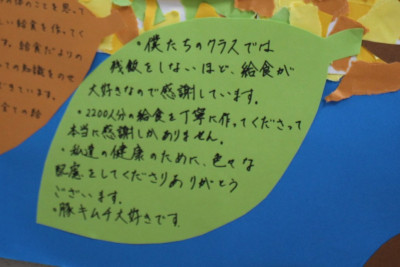 の体のことを思って
しい給食を作ってく
す。給食だよりの
ての知識をのせ
できています。
全ての給
・僕たちのクラスでは
残飯をしないほど、給食が
大好きなので感謝しています。
・2200人分の給食を丁寧に作ってくださって
本当に感謝しかありません。
・私達の健康のために、色々な
配慮をしてくださりありがとう
ございます。
・豚キムチ大好きです